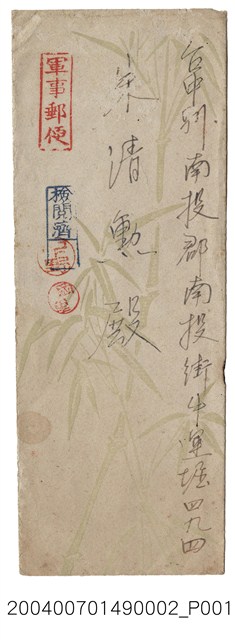 台中州南投郡南投街牛運堀四九四
清勳殿
軍事郵便
検閲済
200400701490002_P001